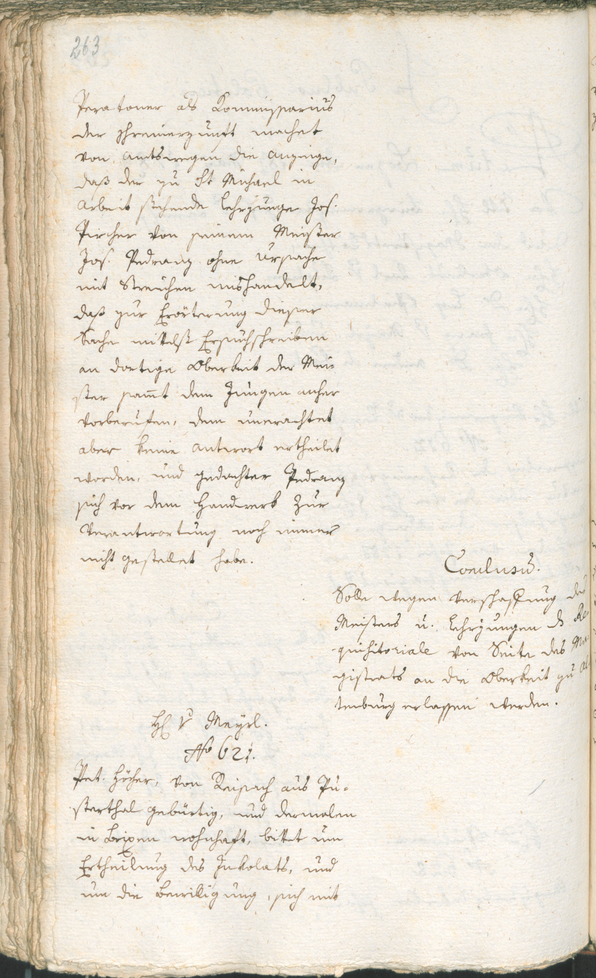 263
Peratoner als Kommissarius
der Schreinerzunft machet
von Amtswegen die Anzeige,
daß der zu St. Michael in
Arbeit stehende Lehrjunge Jos.
Pircher von seinem Meister
Jos. Pedranz ohne Ursache
mit Streichen mishandelt,
daß zur Erörterung dieser
Sache mittelst Ersuchschreiben
an dortige Oberkeit der Mei-
ster sammt dem Jungen anher
vorberufen, dem unerachtet
aber keine Antwort ertheilet
worden, und gedachter Pedranz
sich vor dem Handwerk zur
Verantwortung noch immer
nicht gestellet habe.
Conclusu.
Solle wegen Verschaffung des
Meisters u. Lehrjungen d Re
quisitoriale von Seite des Ma
gistrats an die Oberkeit zu Al
tenburg erlassen werden.
H v Mayrl.
No 621.
Pet. Hofer, von Reisach aus Pu-
sterthal gebürtig, und dermalen
in Brixen wohnhaft, bittet um
Ertheilung des Inkolats, und
um die Bewilligung, sich mit